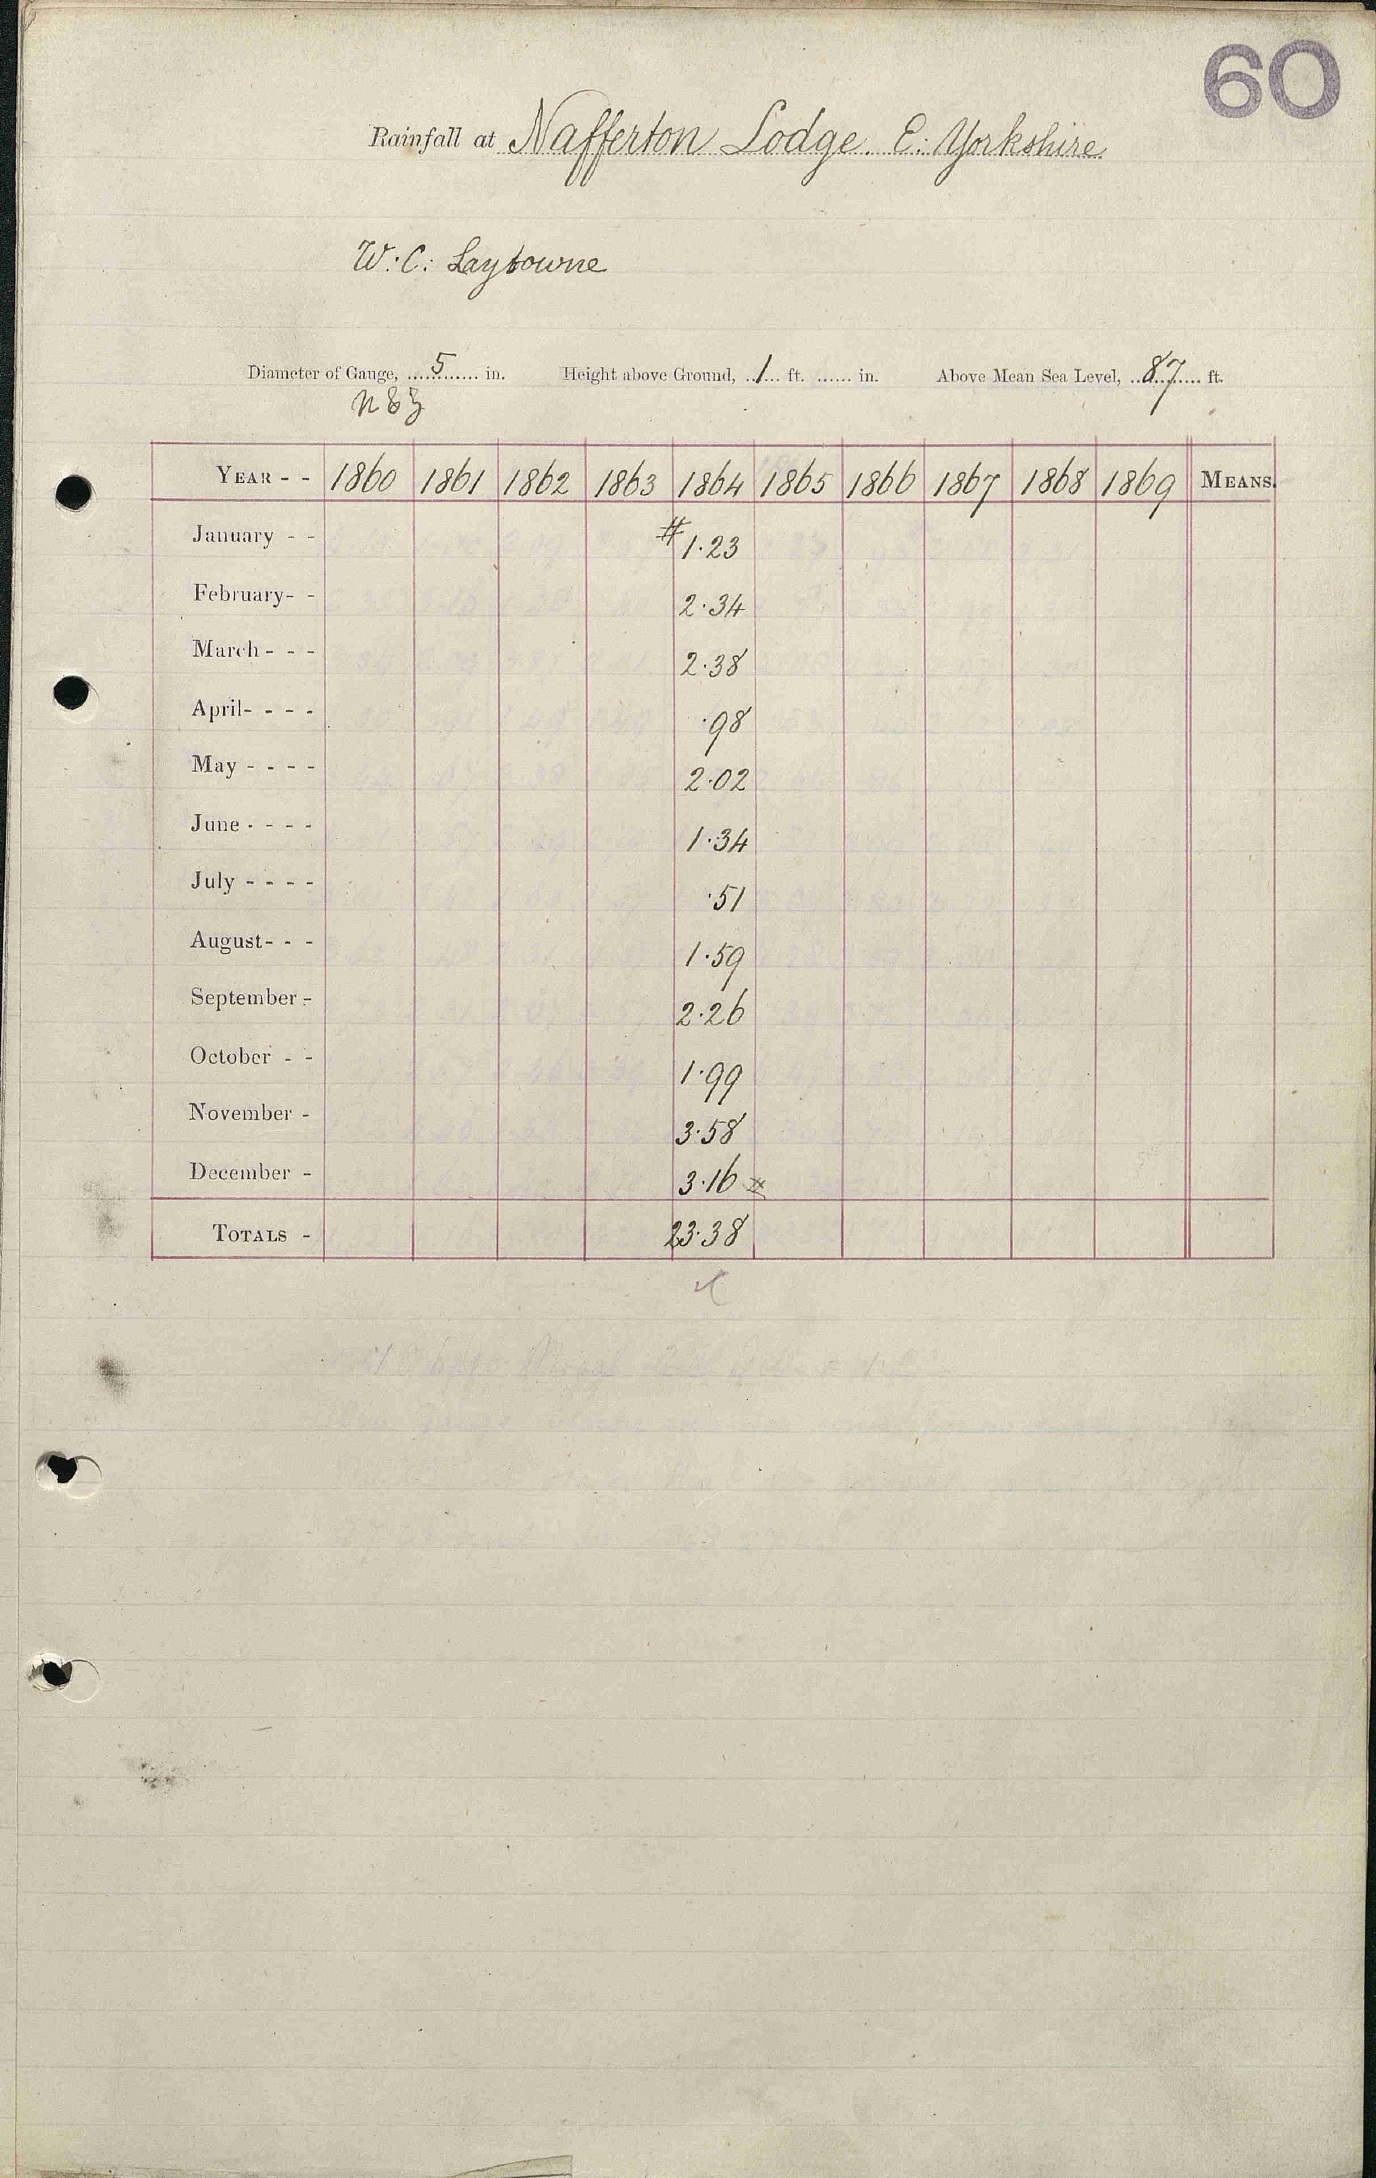 60
Rainfall at Nafferton Lodge. E: Yorkshire.
W: C: Laybourne
Diameter of Gauge, 5 in. Height above Ground, 1 ft. in. Above Mean Sea Level, 87 ft.
YEAR - - 1860 1861 1862 1863 1864 1865 1866 1867 1868 1869 MEANS.
January - - # 1.23
February - - 2.34
March - - - 2.38
April - - - - .98
May - - - - 2.02
June - - - - 1.34
July - - - - .51
August - - - 1.59
September - 2.26
October - - 1.99
November - 3.58
December - 3.16 #
TOTALS - 23.38